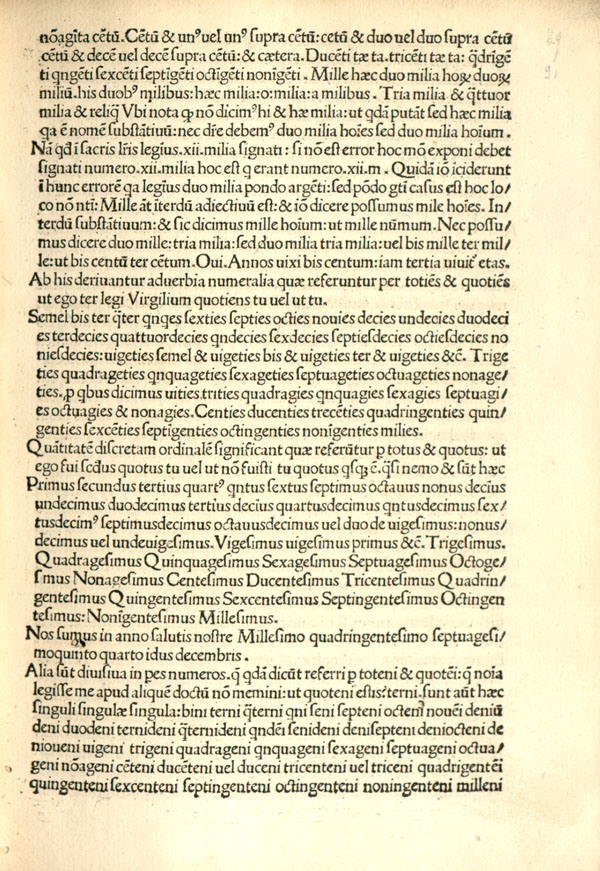 nōagīta cētū. Cētū & unꝰ uel unꝰ supra cētū: cetū & duo uel duo supra cētū
cētū & decē uel decē supra cētū: & cætera. Ducēti tæ ta. tricēti tæ ta: q̄drīgē
ti qngēti sexcēti septīgēti octīgēti nonīgēti. Mille hæc duo milia hoꝝ duoꝝ
miliū. his duobꝰ milibus: hæc milia: o: milia: a milibus. Tria milia & q̄ttuor
milia & reliq̄ Vbi nota ꝙ nō dicimꝰ hi & hæ milia: ut qdā putāt sed hæc milia
qa ē nomē substātiuū: nec dr̄e debemꝰ duo milia hoīes sed duo milia hoīum.
Nā qd ī sacris lr̄is legius .xii. milia signati: si nō est error hoc mō exponi debet
signati numero .xii. milia hoc est q erant numero .xii. m. Quidā iō iciderunt
ī hunc errorē qa legius duo milia pondo argēti: sed pōdo gtī casus est hoc lo/
co nō ntī: Mille āt īterdū adiectiuū est: & iō dicere possumus mile hoīes. In/
terdū substātiuum: & sic dicimus mille hoīum: ut mille nūmum. Nec possu/
mus dicere duo mille: tria milia: sed duo milia tria milia: uel bis mille ter mil/
le: ut bis centū ter cētum. Oui. Annos uixi bis centum: iam tertia uiuit etas.
Ab his deriuantur aduerbia numeralia quæ referuntur per totiēs & quotiēs
ut ego ter legi Virgilium quotiens tu uel ut tu.
Semel bis ter q̄ter qnqes sexties septies octies nouies decies undecies duodeci
es terdecies quattuordecies qndecies sexdecies septiesdecies octiesdecies no
niesdecies: uigeties semel & uigeties bis & uigeties ter & uigeties &c̄. Trige
ties quadrageties qnquageties sexageties septuageties octuageties nonage/
ties. ꝓ qbus dicimus uities. trities quadragies qnquagies sexagies septuagi/
es octuagies & nonagies. Centies ducenties trecēties quadringenties quin/
genties sexcēties septīgenties octingenties nonīgenties milies.
Quātitatē discretam ordinalē significant quæ referūtur ꝑ totus & quotus: ut
ego fui scdus quotus tu uel ut nō fuisti tu quotus qsq; ē. q̄si nemo & sūt hæc
Primus secundus tertius quartꝰ qntus sextus septimus octauus nonus decius
undecimus duodecimus tertius decius quartusdecimus qntusdecimus sex/
tusdecimꝰ septimusdecimus octauusdecimus uel duo de uigesimus: nonus/
decimus uel undeuigesimus. Vigesimus uigesimus primus &c̄. Trigesimus.
Quadragesimus Quinquagesimus Sexagesimus Septuagesimus Octoge/
simus Nonagesimus Centesimus Ducentesimus Tricentesimus Quadrin/
gentesimus Quingentesimus Sexcentesimus Septingentesimus Octingen
tesimus: Nonīgentesimus Millesimus.
Nos sumus in anno salutis nostre Millesimo quadringentesimo septuagesi/
moquīnto quarto idus decembris.
Alia sūt diuisiua in pes numeros. q qdā dicūt referri ꝑ toteni & quotēi: q̄ noīa
legisse me apud aliquē doctū nō memini: ut quoteni estis: terni. sunt aūt hæc
singuli singulæ singula: bini terni q̄terni qni seni septeni octeni nouēi deniū
deni duodeni ternideni q̄ternideni qndēi senideni deniseptenı deniocteni de
nioueni uigeni trigeni quadrageni qnquageni sexageni septuageni octua/
geni nōageni cēteni ducēteni uel duceni tricenteni uel triceni quadrigentēi
quingenteni sexcenteni septingenteni octingenteni noningenteni milleni